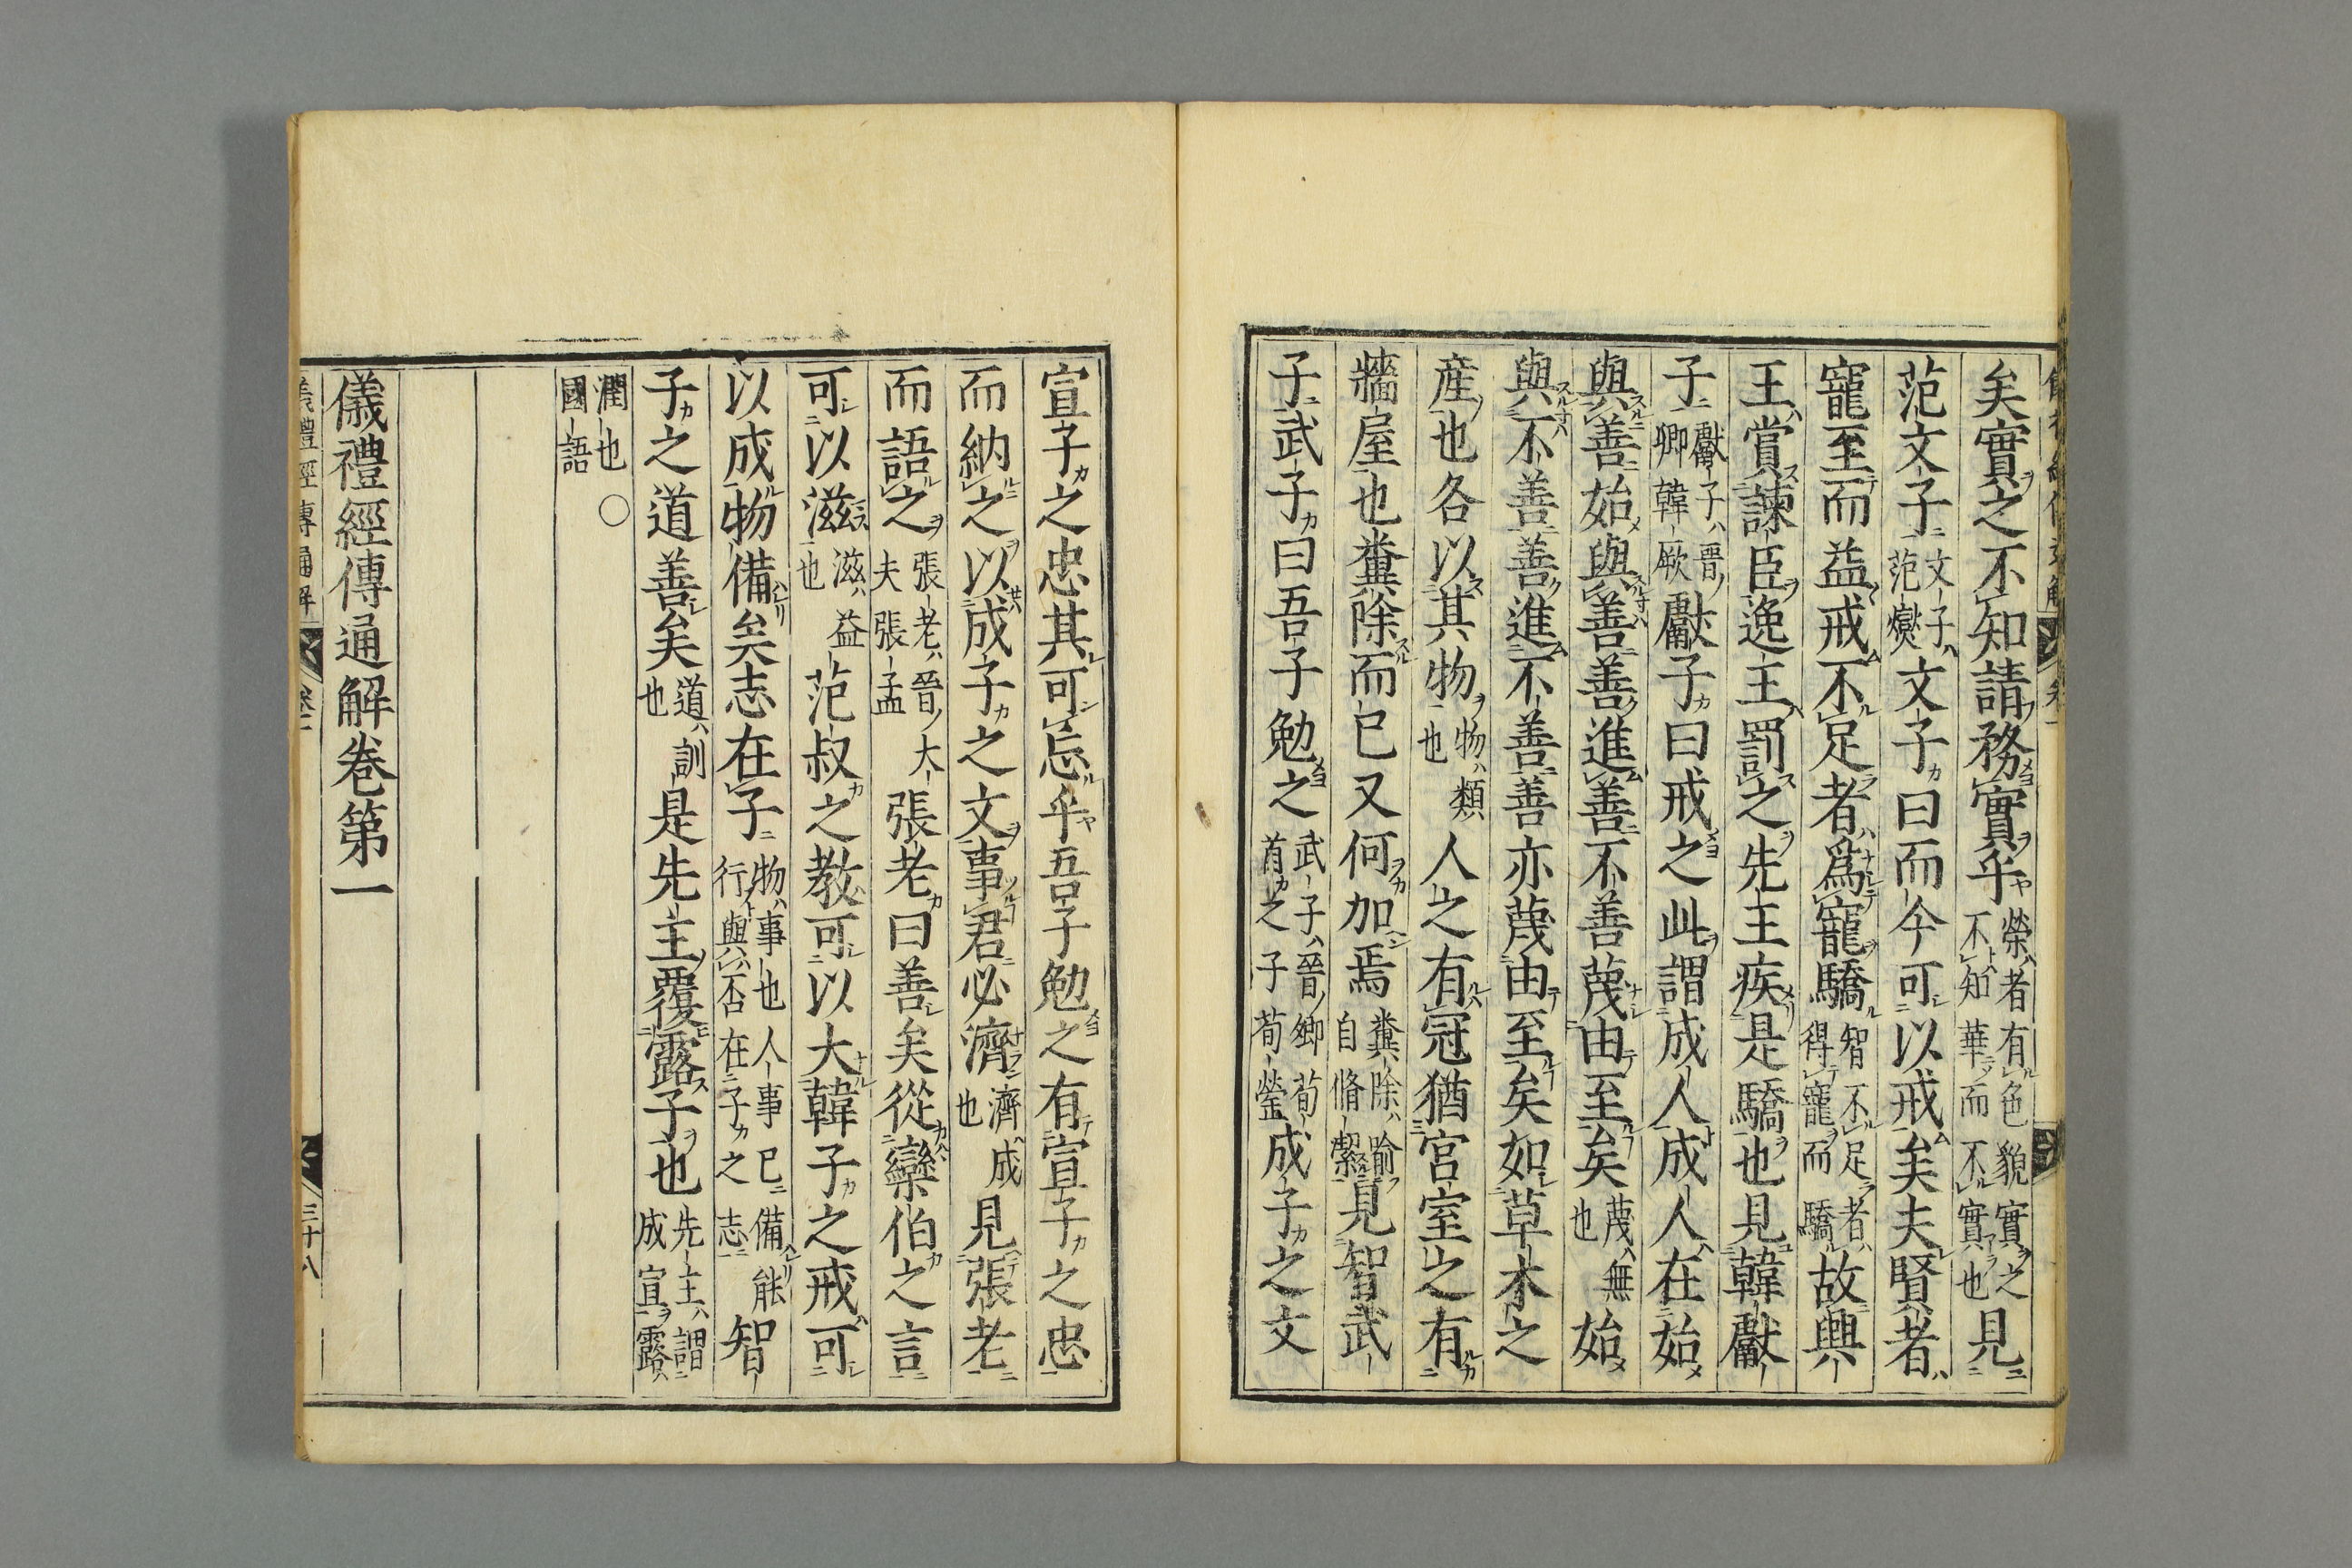 矣實之不知請務實乎榮者有色貌實之不知華而不實也見
范文子文子范燮文子曰而今可以戒矣夫賢者
寵至而益戒不足者爲寵驕智不足者得寵而驕故興
王賞諫臣逸王罰之先王疾是驕也見韓獻
子獻子晉卿韓厥獻子曰戒之此謂成人成人在始
與善始與善善進善不善蔑由至矣蔑無也始
與不善不善進不善善亦蔑由至矣如草木之
産也各以其物物類也人之有冠猶宮室之有
牆屋也糞除而已又何加焉糞除喻自脩潔見智武
子武子曰吾子勉之武子晉卿荀首之子荀罃成子之文
宣子之忠其可忘乎吾子勉之有宣子之忠
而納之以成子之文事君必濟濟成也見張老
而語之張老晉大夫張孟張老曰善矣從欒伯之言
可以滋滋益也范叔之教可以大韓子之戒可
以成物備矣志在子物事也人事已備能行與否在子之志智
子之道善矣道訓也是先主覆露子也先主謂成宣露
潤也○國語
儀禮經傳通解卷第一
儀禮經傳通解 卷一 三十八